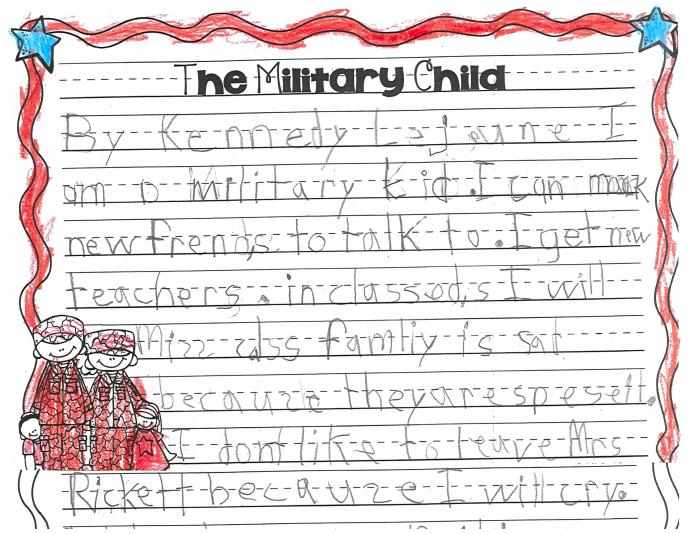 The Military Child
By Kennedy Lejaune I
am a Military kid. I can
new frends to talk to. I get new
teachers. in I will
Mizz famtiy is sat
becauze they are speseit.
I dont like to leave Mrs
Rickett becauze I will cry.